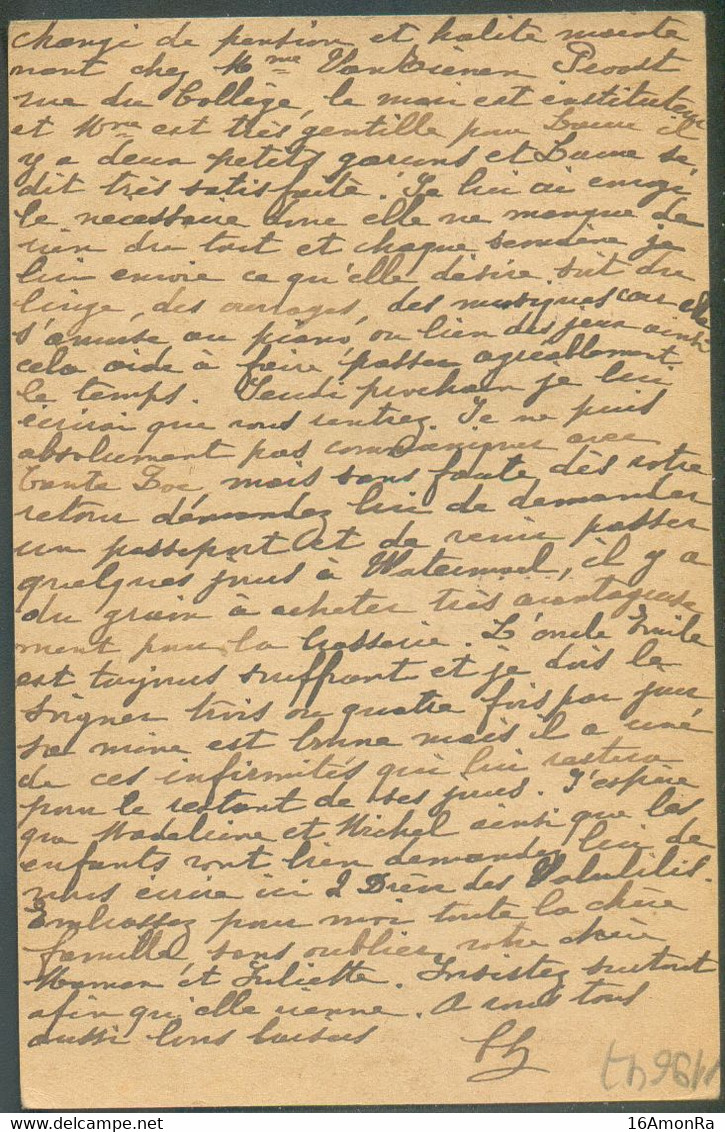 changé de pension et habite mainte
nant chez Mme Proost
rue du Collège, le mari est instituteur
et Mme est très gentille pour Laure il
y a deux petits garçons et Laure se
dit très satisfaite. Je lui ai envoyé
le nécessaire donc elle ne manque de
rien du tout et chaque semaine je
lui envoie ce qu'elle désire soit du
linge, des ouvrages, des musiques car elle
s'amuse au piano, ou bien des jeux ainsi
cela aide à faire passer agréablement
le temps. Jeudi prochain je lui
écrirai que vous rentrez. Je ne puis
absolument pas communiquer avec
tante Zoé mais sans faute dès votre
retour demandez lui de demander
un passeport et de venir passer
quelques jours à Watermael, il y a
du grain à acheter très avantageuse
ment pour la brasserie. L'oncle Emile
est toujours souffrant et je dois le
soigner trois ou quatre fois par jour
sa mine est bonne mais il a une
de ces infirmités qui lui restera
pour le restant de ses jours. J'espère
que Madeleine et Michel ainsi que les
enfants vont bien demandez lui de
nous écrire ici 2 Drève des
Embrassez pour moi toute la chère
famille sans oublier votre chère
Maman et Juliette. Insistez surtout
afin qu'elle vienne. A vous tous
aussi bons baisers
16AmonRa